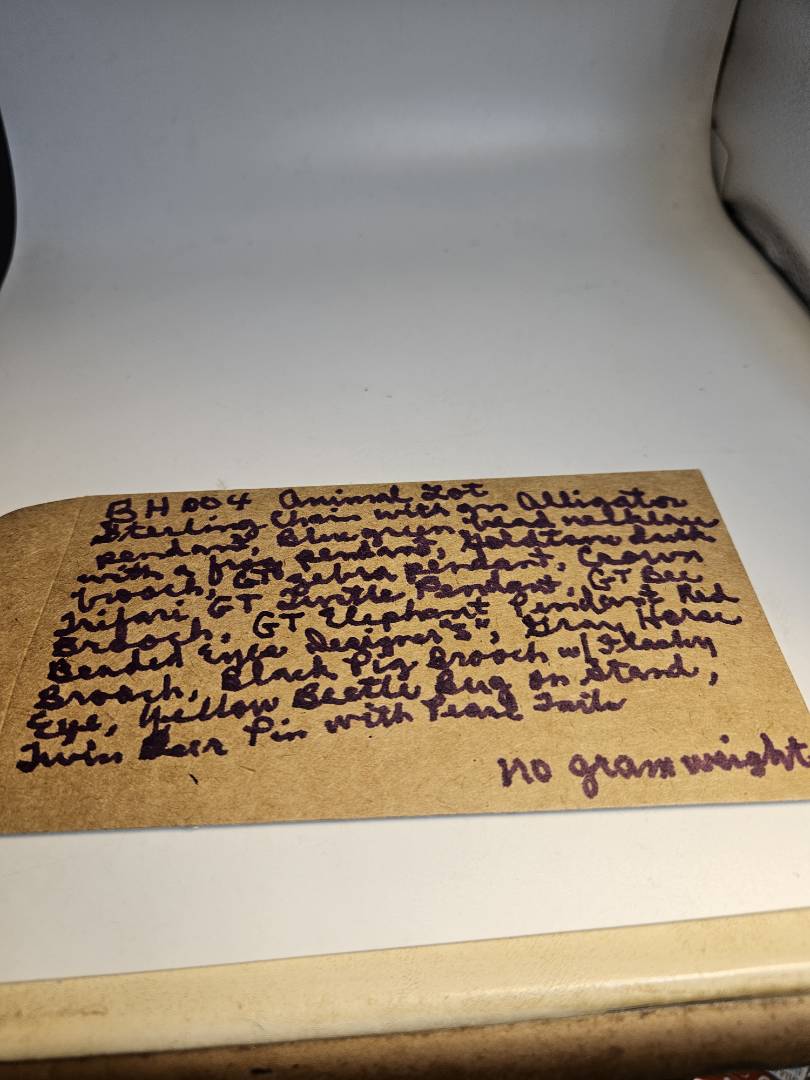 BH 004 Animal Lot
Sterling Chain with an Alligator
pendant, Blue green bead necklace
with a frog pendant, Goldtone
brooch, GT zebra pendant, Crown
Trifari GT Turtle Pendant, GT Bee
Brooch, GT Elephant Pendant Red
Beaded Eyes Designer "S", Gray Horse
Brooch, Black Pig Brooch w/ Flashy
Eye, Yellow Beetle Bug on Stand,
Twin Pin with Pearl Tails
no gram weight